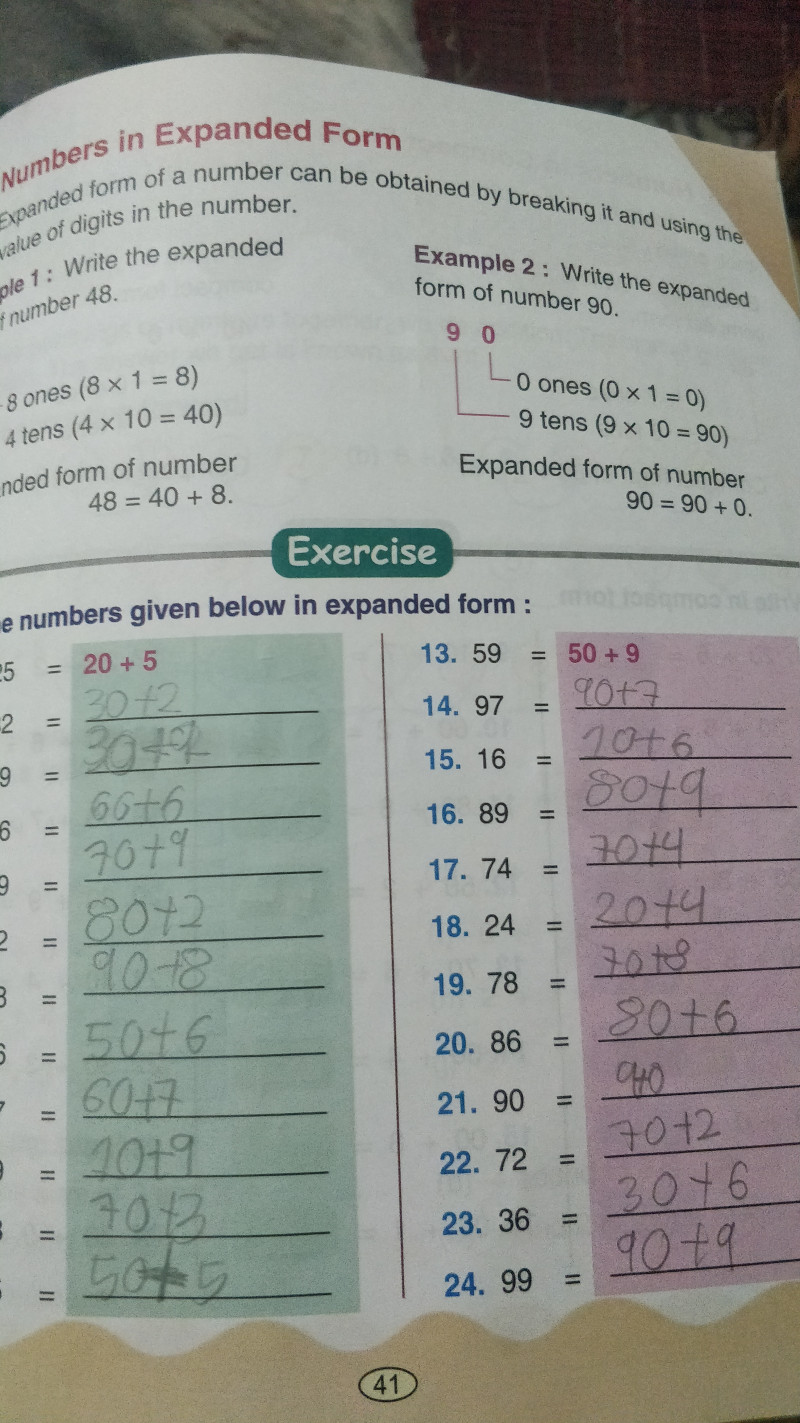 Numbers in Expanded Form
Expanded form of a number can be obtained by breaking it and using the
value of digits in the number.
ple 1 : Write the expanded
f number 48.
8 ones (8 × 1 = 8)
4 tens (4 × 10 = 40)
nded form of number
48 = 40 + 8.
Example 2 : Write the expanded
form of number 90.
9 0
0 ones (0 × 1 = 0)
9 tens (9 × 10 = 90)
Expanded form of number
90 = 90 + 0.
Exercise
e numbers given below in expanded form :
25 = 20 + 5
2 = 30+2
9 =
6 = 60+6
9 = 70+9
2 = 80+2
8 = 90+8
6 = 50+6
7 = 60+7
9 = 10+9
3 = 70+3
= 50+5
13. 59 = 50 + 9
14. 97 = 90+7
15. 16 = 10+6
16. 89 = 80+9
17. 74 = 70+4
18. 24 = 20+4
19. 78 = 70+8
20. 86 = 80+6
21. 90 = 9+0
22. 72 = 70+2
23. 36 = 30+6
24. 99 = 90+9
41